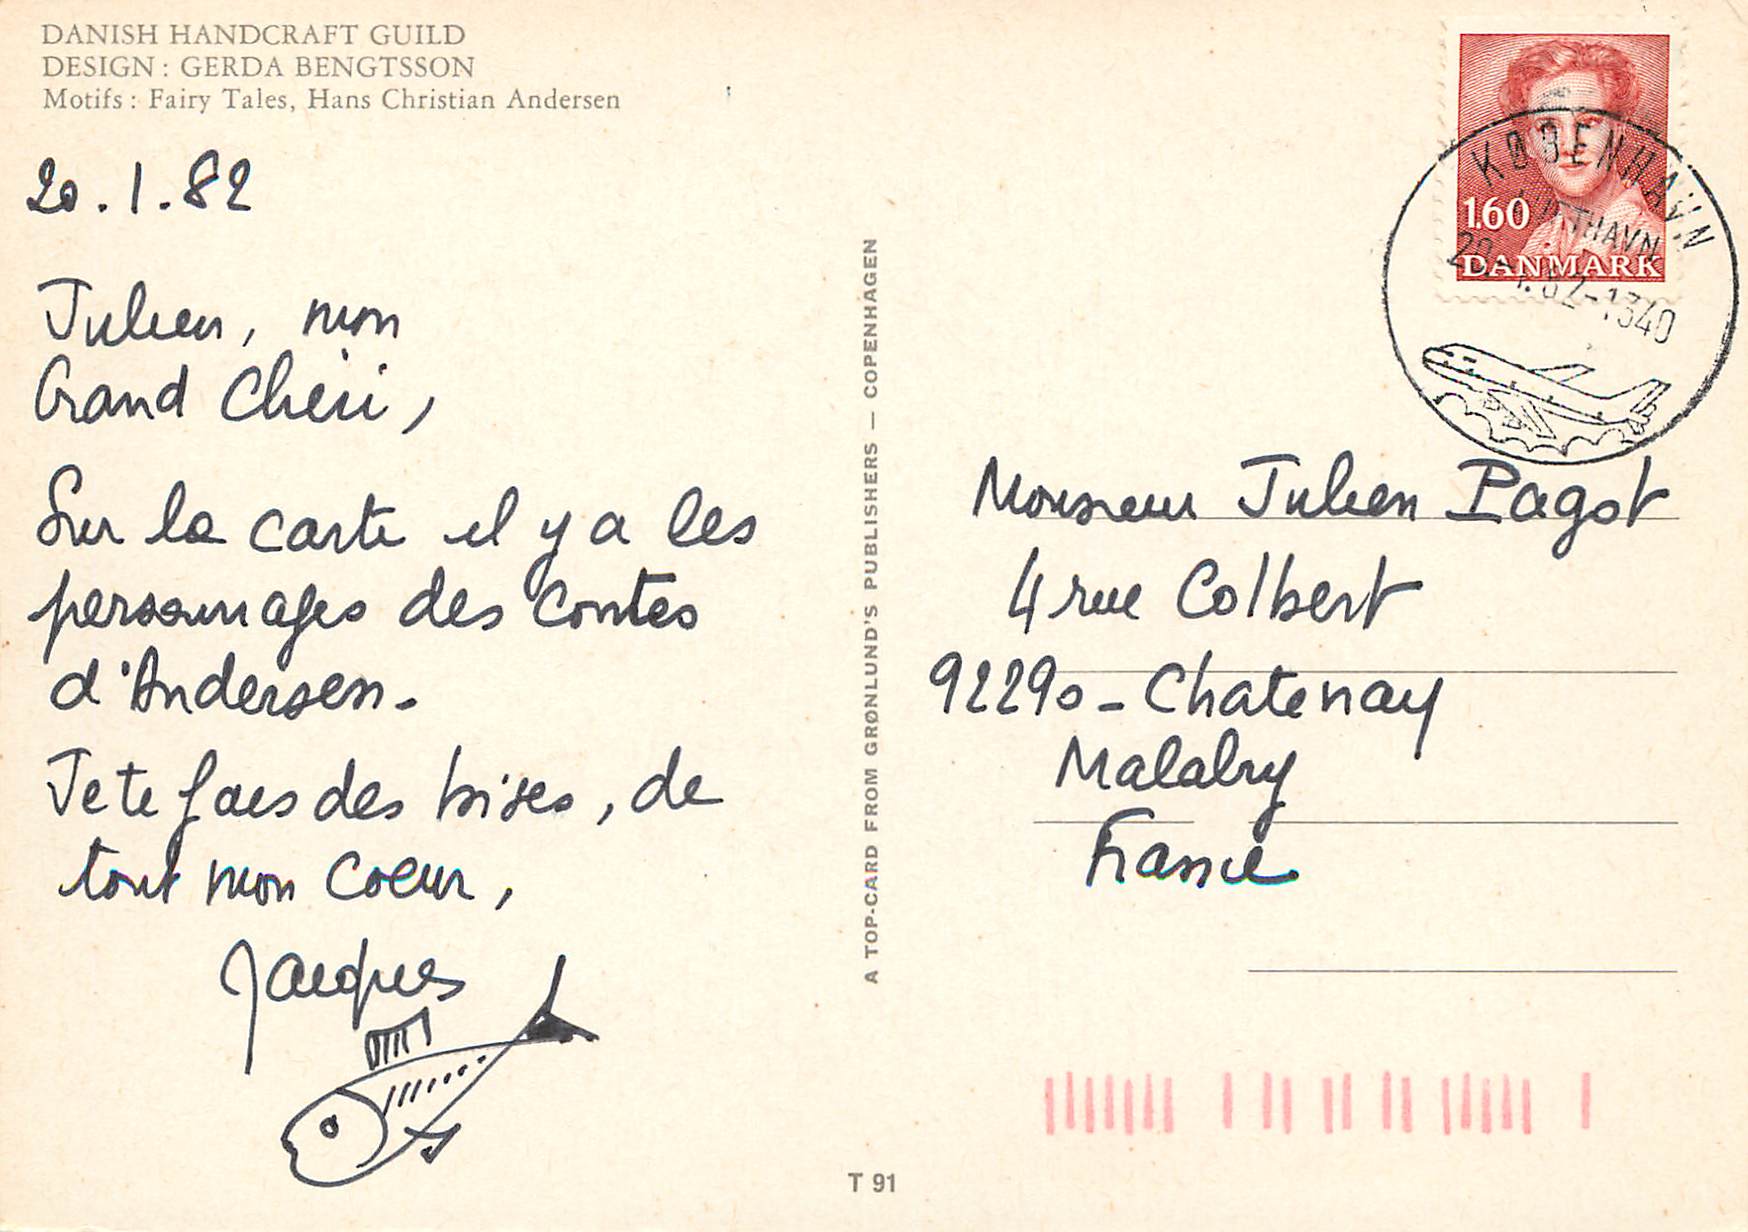 DANISH HANDCRAFT GUILD
DESIGN : GERDA BENGTSSON
Motifs : Fairy Tales, Hans Christian Andersen
20.1.82
Julien, mon
Grand Chéri,
Sur la carte il y a les
personnages des contes
d'Andersen.
Je te fais des bises, de
tout mon coeur,
Jacques
A TOP-CARD FROM GRØNLUND'S PUBLISHERS — COPENHAGEN
T 91
1.60
DANMARK
KØBENHAVN
THAVN
82-1340
Monsieur Julien Pagot
4 rue Colbert
92290 - Chatenay
Malabry
France